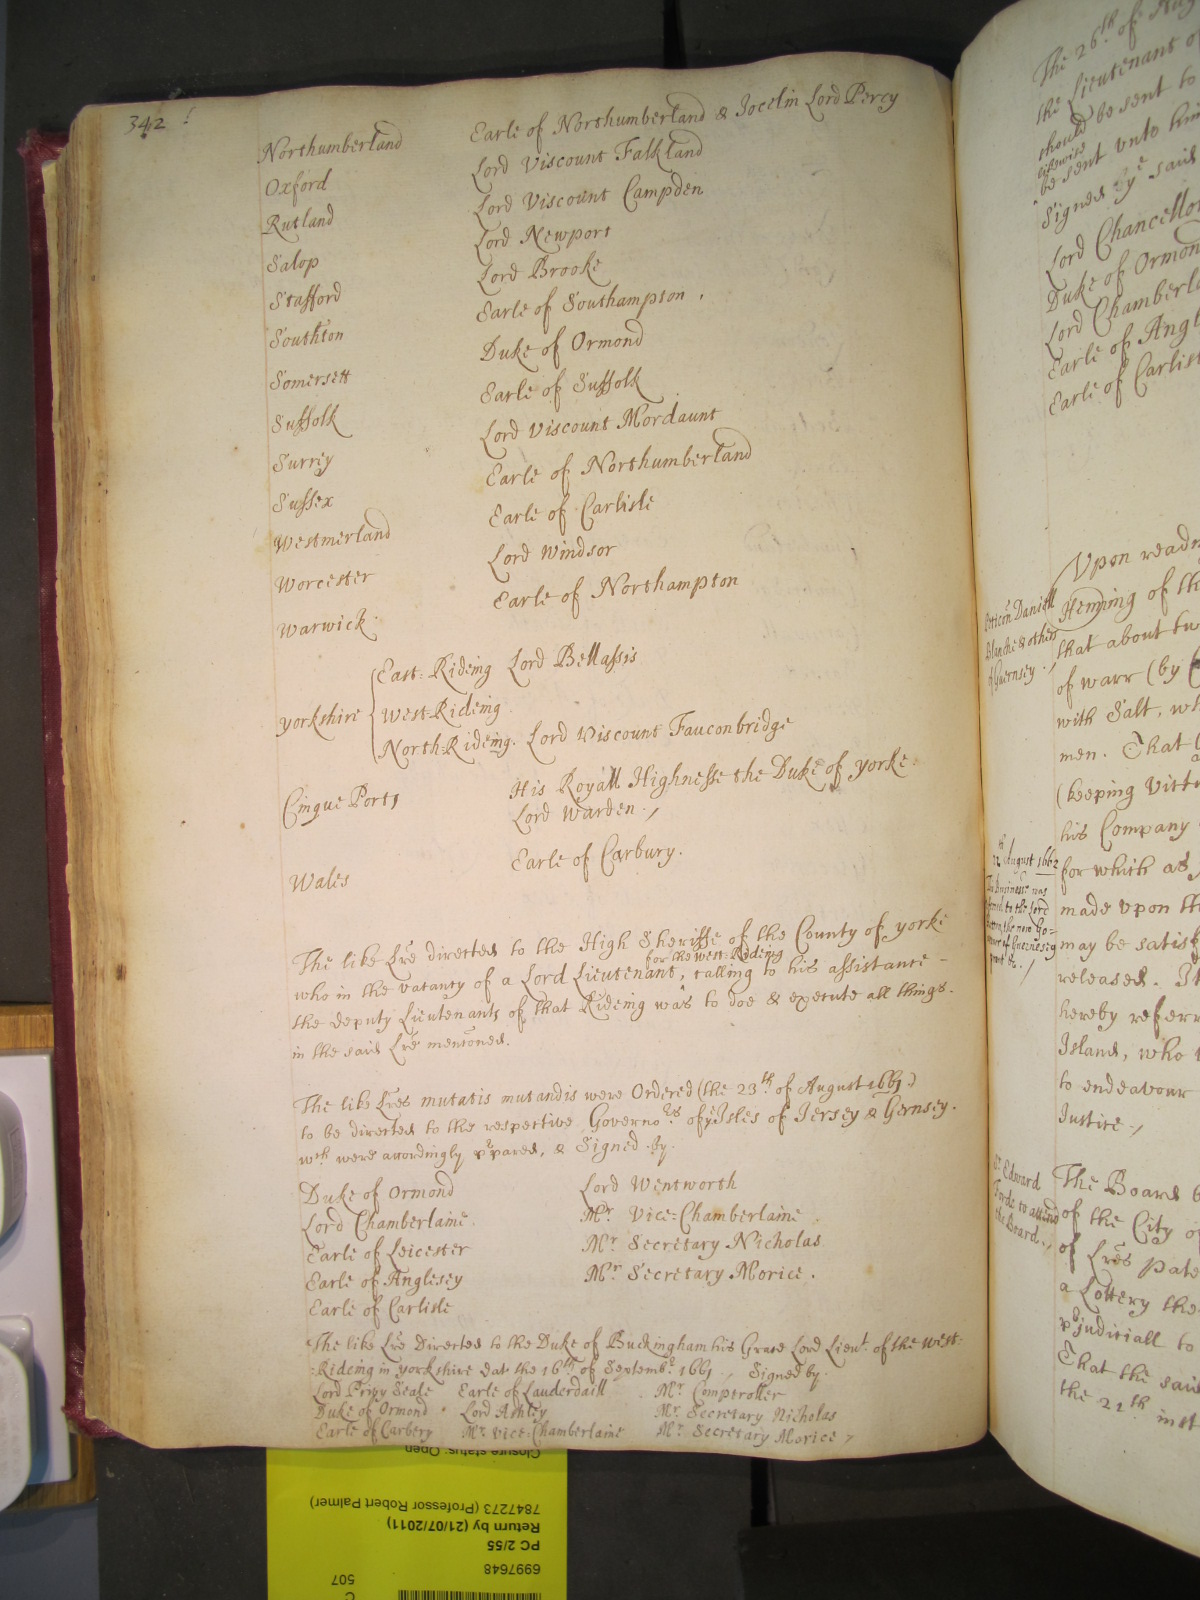 342
Northumberland Earle of Northumberland & Jocelin Lord Percy
Oxford Lord Viscount Falkland
Rutland Lord Viscount Campden
Salop Lord Newport
Stafford Lord Brooke
Southton Earle of Southampton.
Somersett Duke of Ormond
Suffolk Earle of Suffolk
Surrey Lord Viscount Mordaunt
Sussex Earle of Northumberland
Westmerland Earle of Carlisle
Worcester Lord Windsor
Warwick Earle of Northampton
East-Rideing Lord Bellassis
yorkshire West-Rideing
North-Rideing. Lord Viscount Fauconbridge
Cinque Ports His Royall Highnesse the Duke of yorke
Lord Warden.,
Wales Earle of Carbury.
The like Lre directed to the High Sheriffe of the County of yorke
for the West-Rideing
who in the vacancy of a Lord Lieutenant, calling to his assistance
the deputy Lieutenants of that Rideing was to doe & execute all things.
in the said Lre mencõned.
The like Lres mutatis mutandis were Ordered (the 23th of August 1661)
to be directed to the respective Governors of ye Isles of Jersey & Gernsey.
wch were accordingly ppared, & Signed by
Duke of Ormond Lord Wentworth
Lord Chamberlaine Mr Vice-Chamberlaine
Earle of Leicester Mr Secretary Nicholas
Earle of Anglesey Mr Secretary Morice.
Earle of Carlisle
The like Lre Directed to the Duke of Buckingham his Grace Lord Lieut. of the West
Rideing in yorkshire dat the 16th of Septembr 1661., Signed by
Lord Privy Seale Earle of Lauderdaill Mr Comptroller
Duke of Ormond Lord Ashley Mr Secretary Nicholas
Earle of Carbery Mr Vice-Chamberlaine Mr Secretary Morice
The 26th of Aug
the Lieutenant of
should be sent to
likewise
be sent unto him
Signed by ye said
Lord Chancellor
Duke of Ormond
Lord Chamberla
Earle of Angl
Earle of Carlisl
Upon readi
Peticon Daniell
Blanche & others
of Guernsey.,
Heming of the
that about tw
of warr (by
with Salt, wh
men. That
(keeping Vitt
his Company
12th August 1662
for which as
made upon th
may be satisf
released. It
hereby referr
Island, who
to endeavour
Justice.,
Sr Edward
Forde to attend
the Board.,
The Board b
of the City of
of Lres Pate
a Lottery the
pjudiciall to
That the said
the 21th inst
Closure status: Open
7847273 (Professor Robert Palmer)
Return by (21/07/2011)
PC 2/55
6997648
507
C